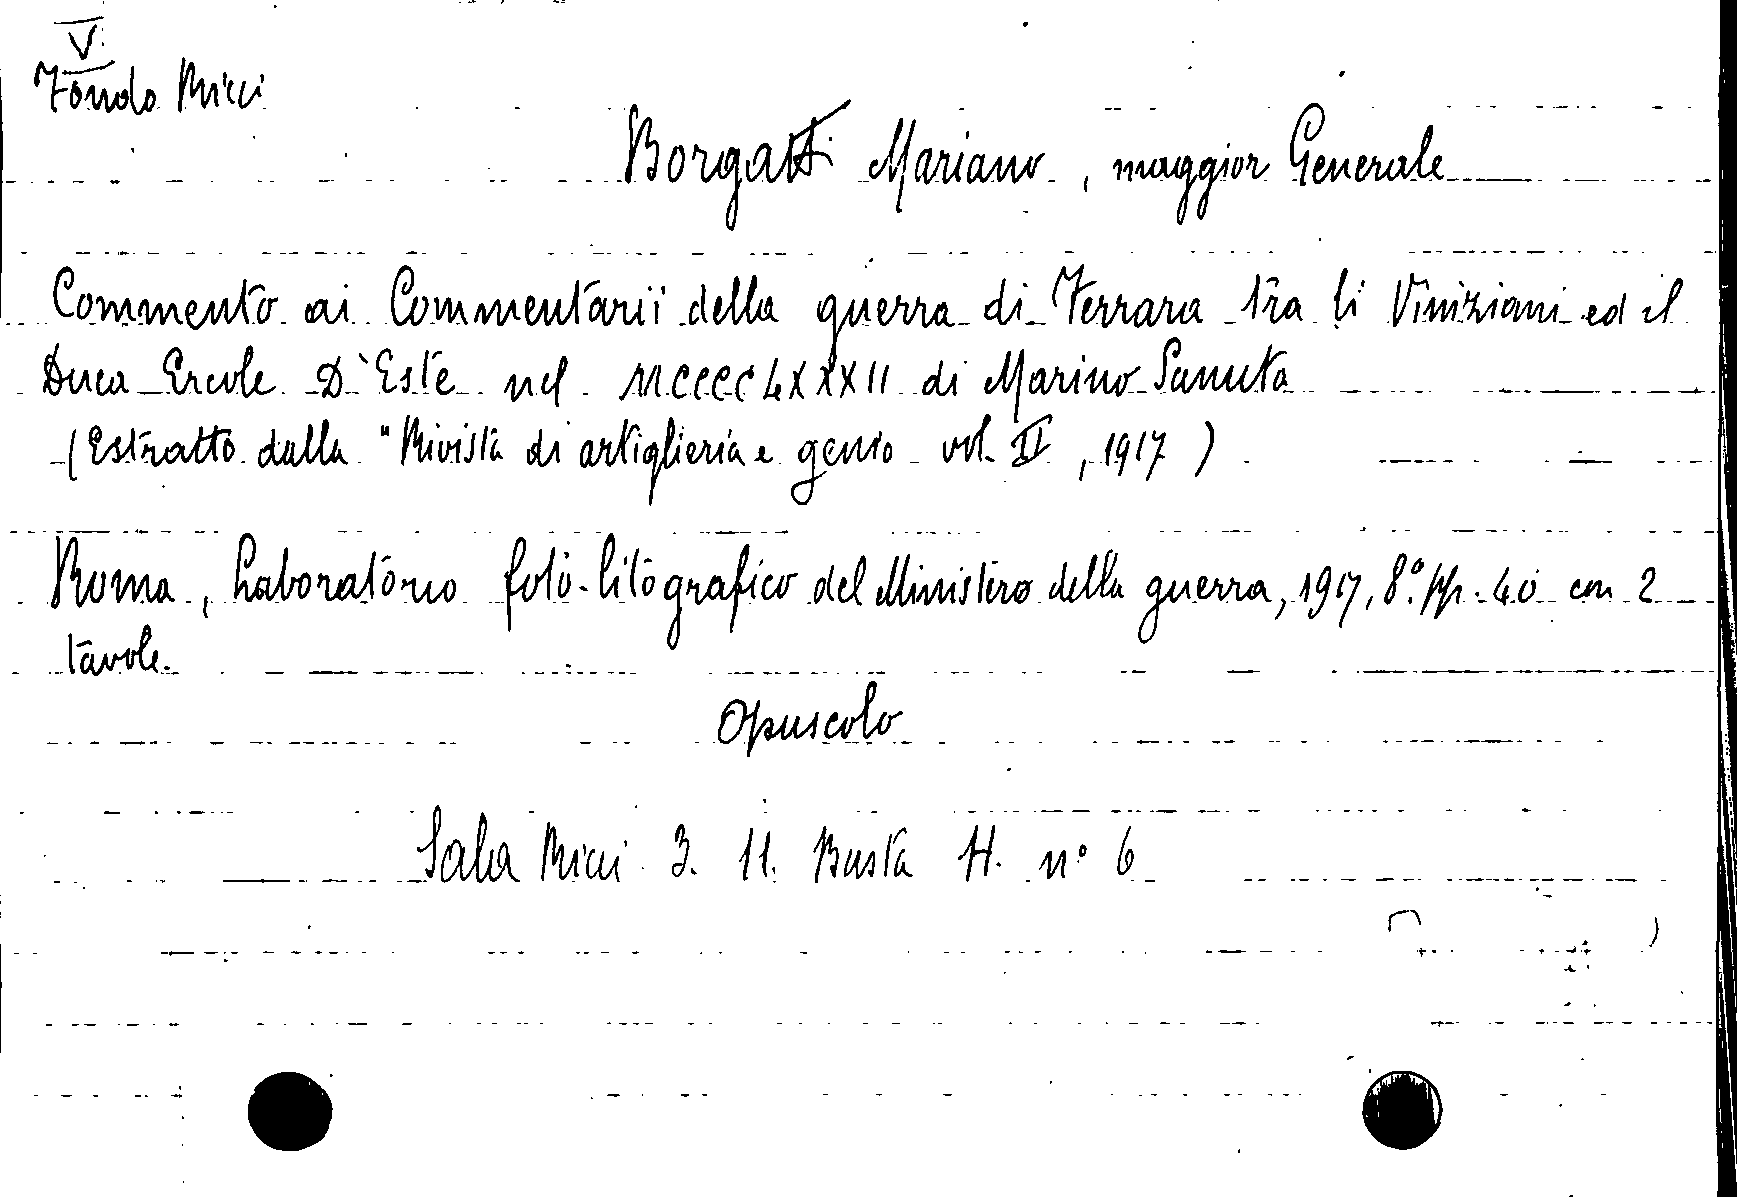 V
Fondo Ricci
Borgatti Mariano, maggior Generale
Commento ai Commentarii della guerra di Ferrara tra li Viniziani ed il
Duca Ercole D'Este nel MCCCCLXXXII di Marino Sanuto
(Estratto dalla "Rivista di artiglieria e genio vol. II, 1917)
Roma, Laboratorio foto-litografico del Ministero della guerra, 1917, 8.° pp. 40 con 2
tavole.
Opuscolo
Sala Ricci 3. 11. Busta H. n° 6